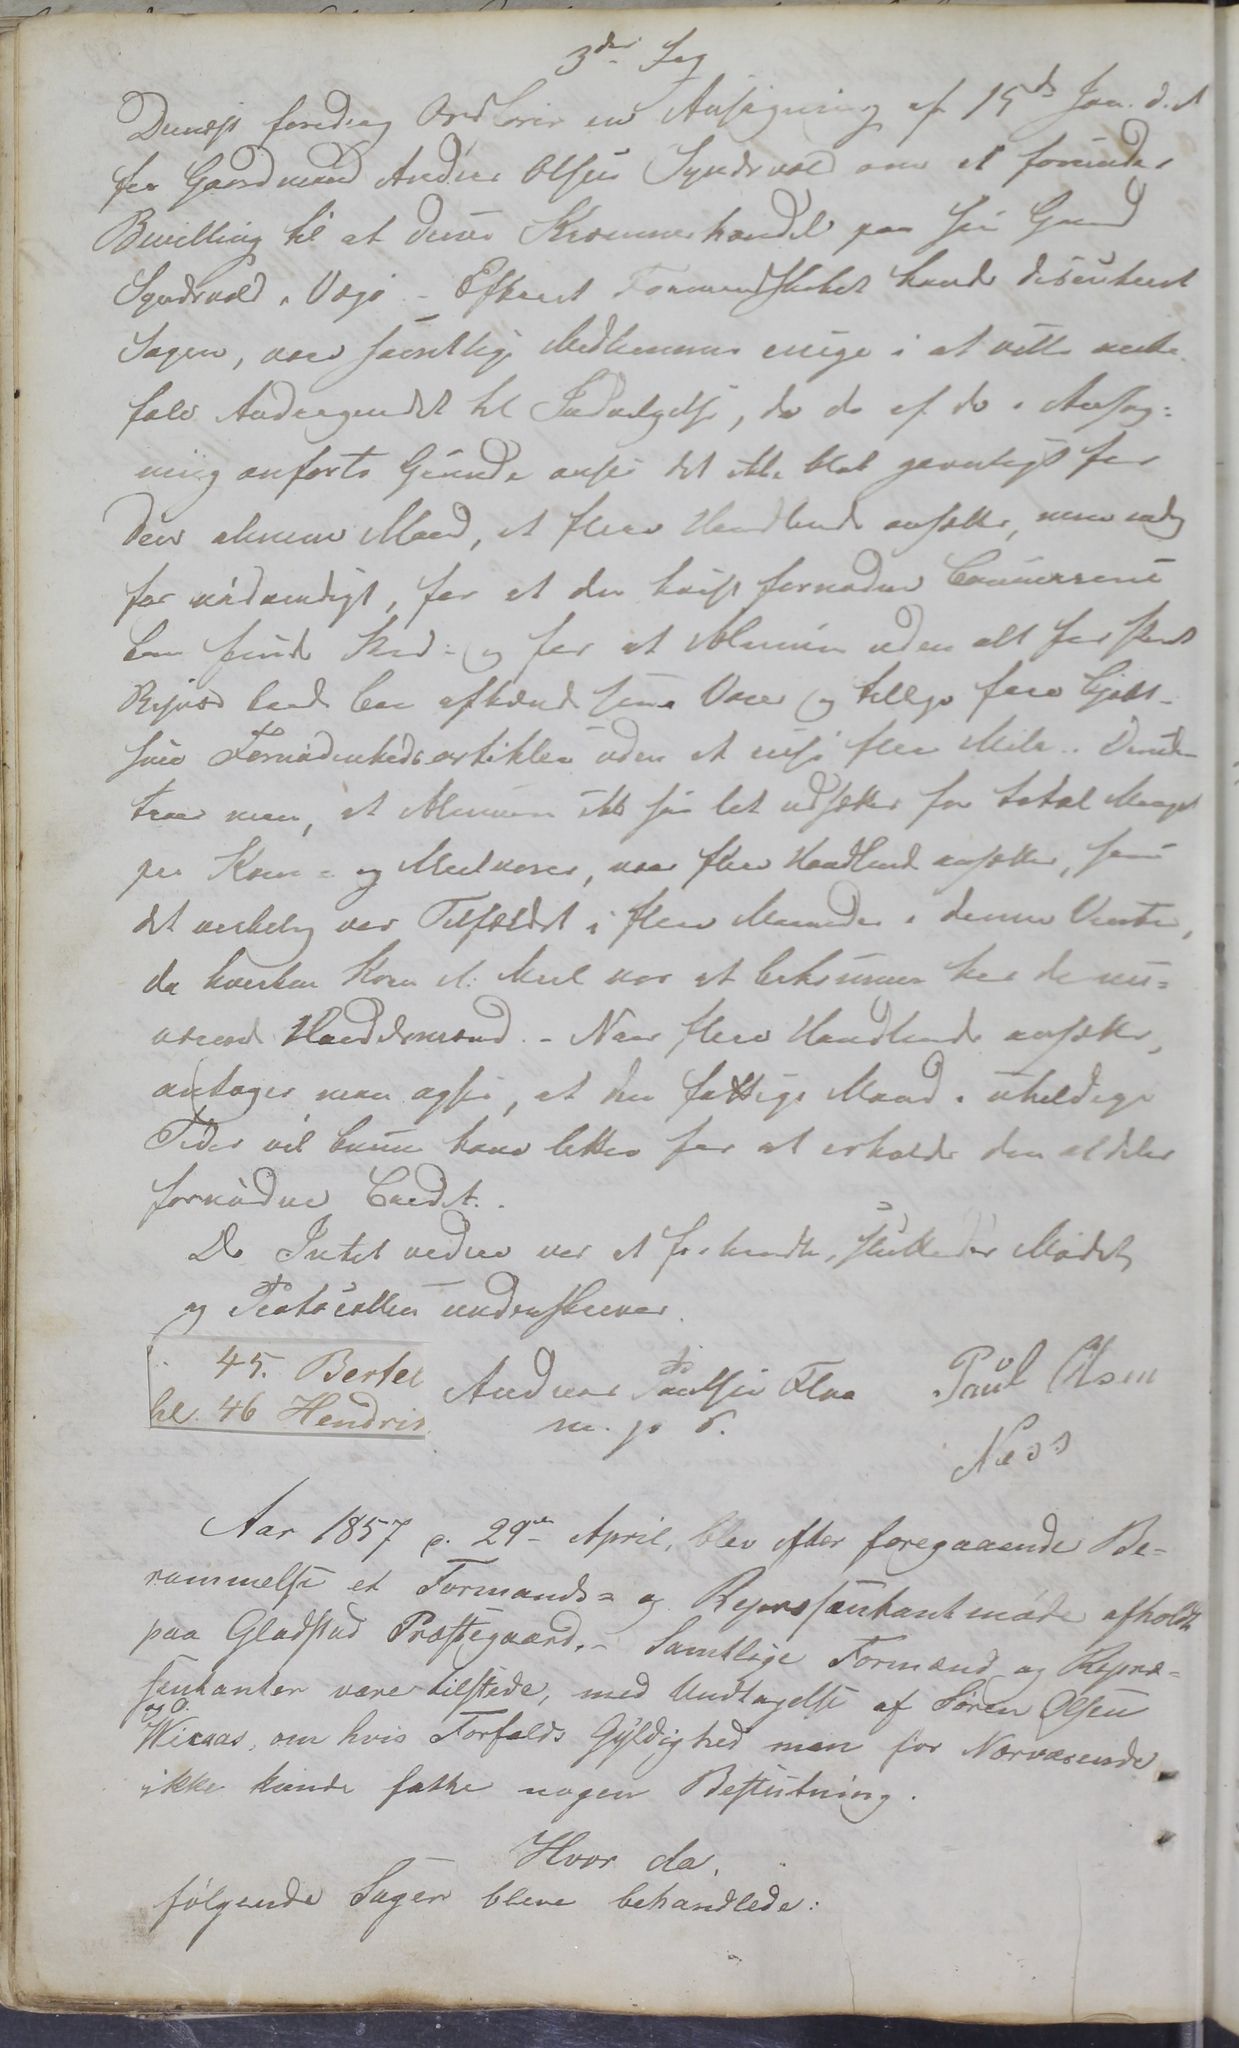 3die Sag
Dernæst foredrog Ordfører en Ansøgning af 15de Jan. d. A
fra Gaardmand Andreas Olsen Syndsvold om at forunde
Bevilling til at drive Kramerhandel paa sin Gaard
Syndsvold i Vegø. - Efterat Formandskabet havde discuteret
Sagen, vare samtlige Medlemmer enige i at ville anbe-
fale Andragendet til Indvilgelse, da de af de i Ansøg:
ning anførte Grunde anse det ikke blot gavnligt for
den almene Mand, at flere Handlende ansættes, men endog
for nødvendigt, for at den høist fornødne Concurrence
kan finde Sted - og for at Almuen uden alt for stort
Besvær kan afhænde sine Varer og tillige faae kjøbt
sine Fornødenhedsartikler uden at reise flere Mile. Dernæst
troer man, at Almuen ikke saa let udsættes for total Mangel
paa Korn- og Meelvarer, naar flere Handlende ansættes, som
det virkelig var Tilfældet i flere Maaneder i denne Vinter,
da hverken Korn el. Meel var at bekomme hos de nu-
værende Handelsmænd. - Naar flere Handlende ansættes,
antager man ogsaa, at den fattige Mand i uheldige
Tider vil kunne have lettere for at erholde den aldeles
fornødne Credit.
Da Intet videre var at forhandle, sluttedes Mødet
og Protocollen underskreves.
45. Bertel
hl. 46 Hendrik
Andreas Poulsen Floa
m. p. P.
Paul Olsen
Næss
Aar 1857 d. 29de April, blev efter foregaaende Be-
rammelse et Formands- og Repræsentantmøde afholdt
paa Gladstad Præstegaard. - Samtlige Formænd og Repræ-
sentanter være tilstede, med Undtagelse af Søren Olsen
og O.
Wicaas, om hvis Forfalds Gyldighed man for Nærværende
ikke kunde fatte nogen Beslutning.
Hvor da,
følgende Sager bleve behandlede: